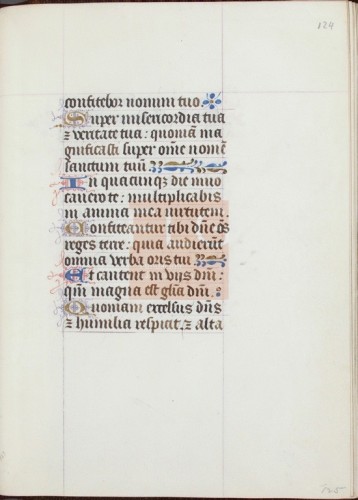 124
confitebor nomini tuo.
Super misericordia tua
⁊ veritate tua: quoniā ma
gnificasti super om̄e nomē
sanctum tuū.
In quacūq; die inuo
cauero te: multiplicabis
in anima mea uirtutem.
Confiteantur tibi dn̄e oēs
reges terre: quia audierūt
omnia verba oris tui:
Et cantent in vijs dn̄i:
qm̄ magna est gl̄ia dn̄i.
Quoniam excelsus dn̄s
⁊ humilia respicit, ⁊ alta